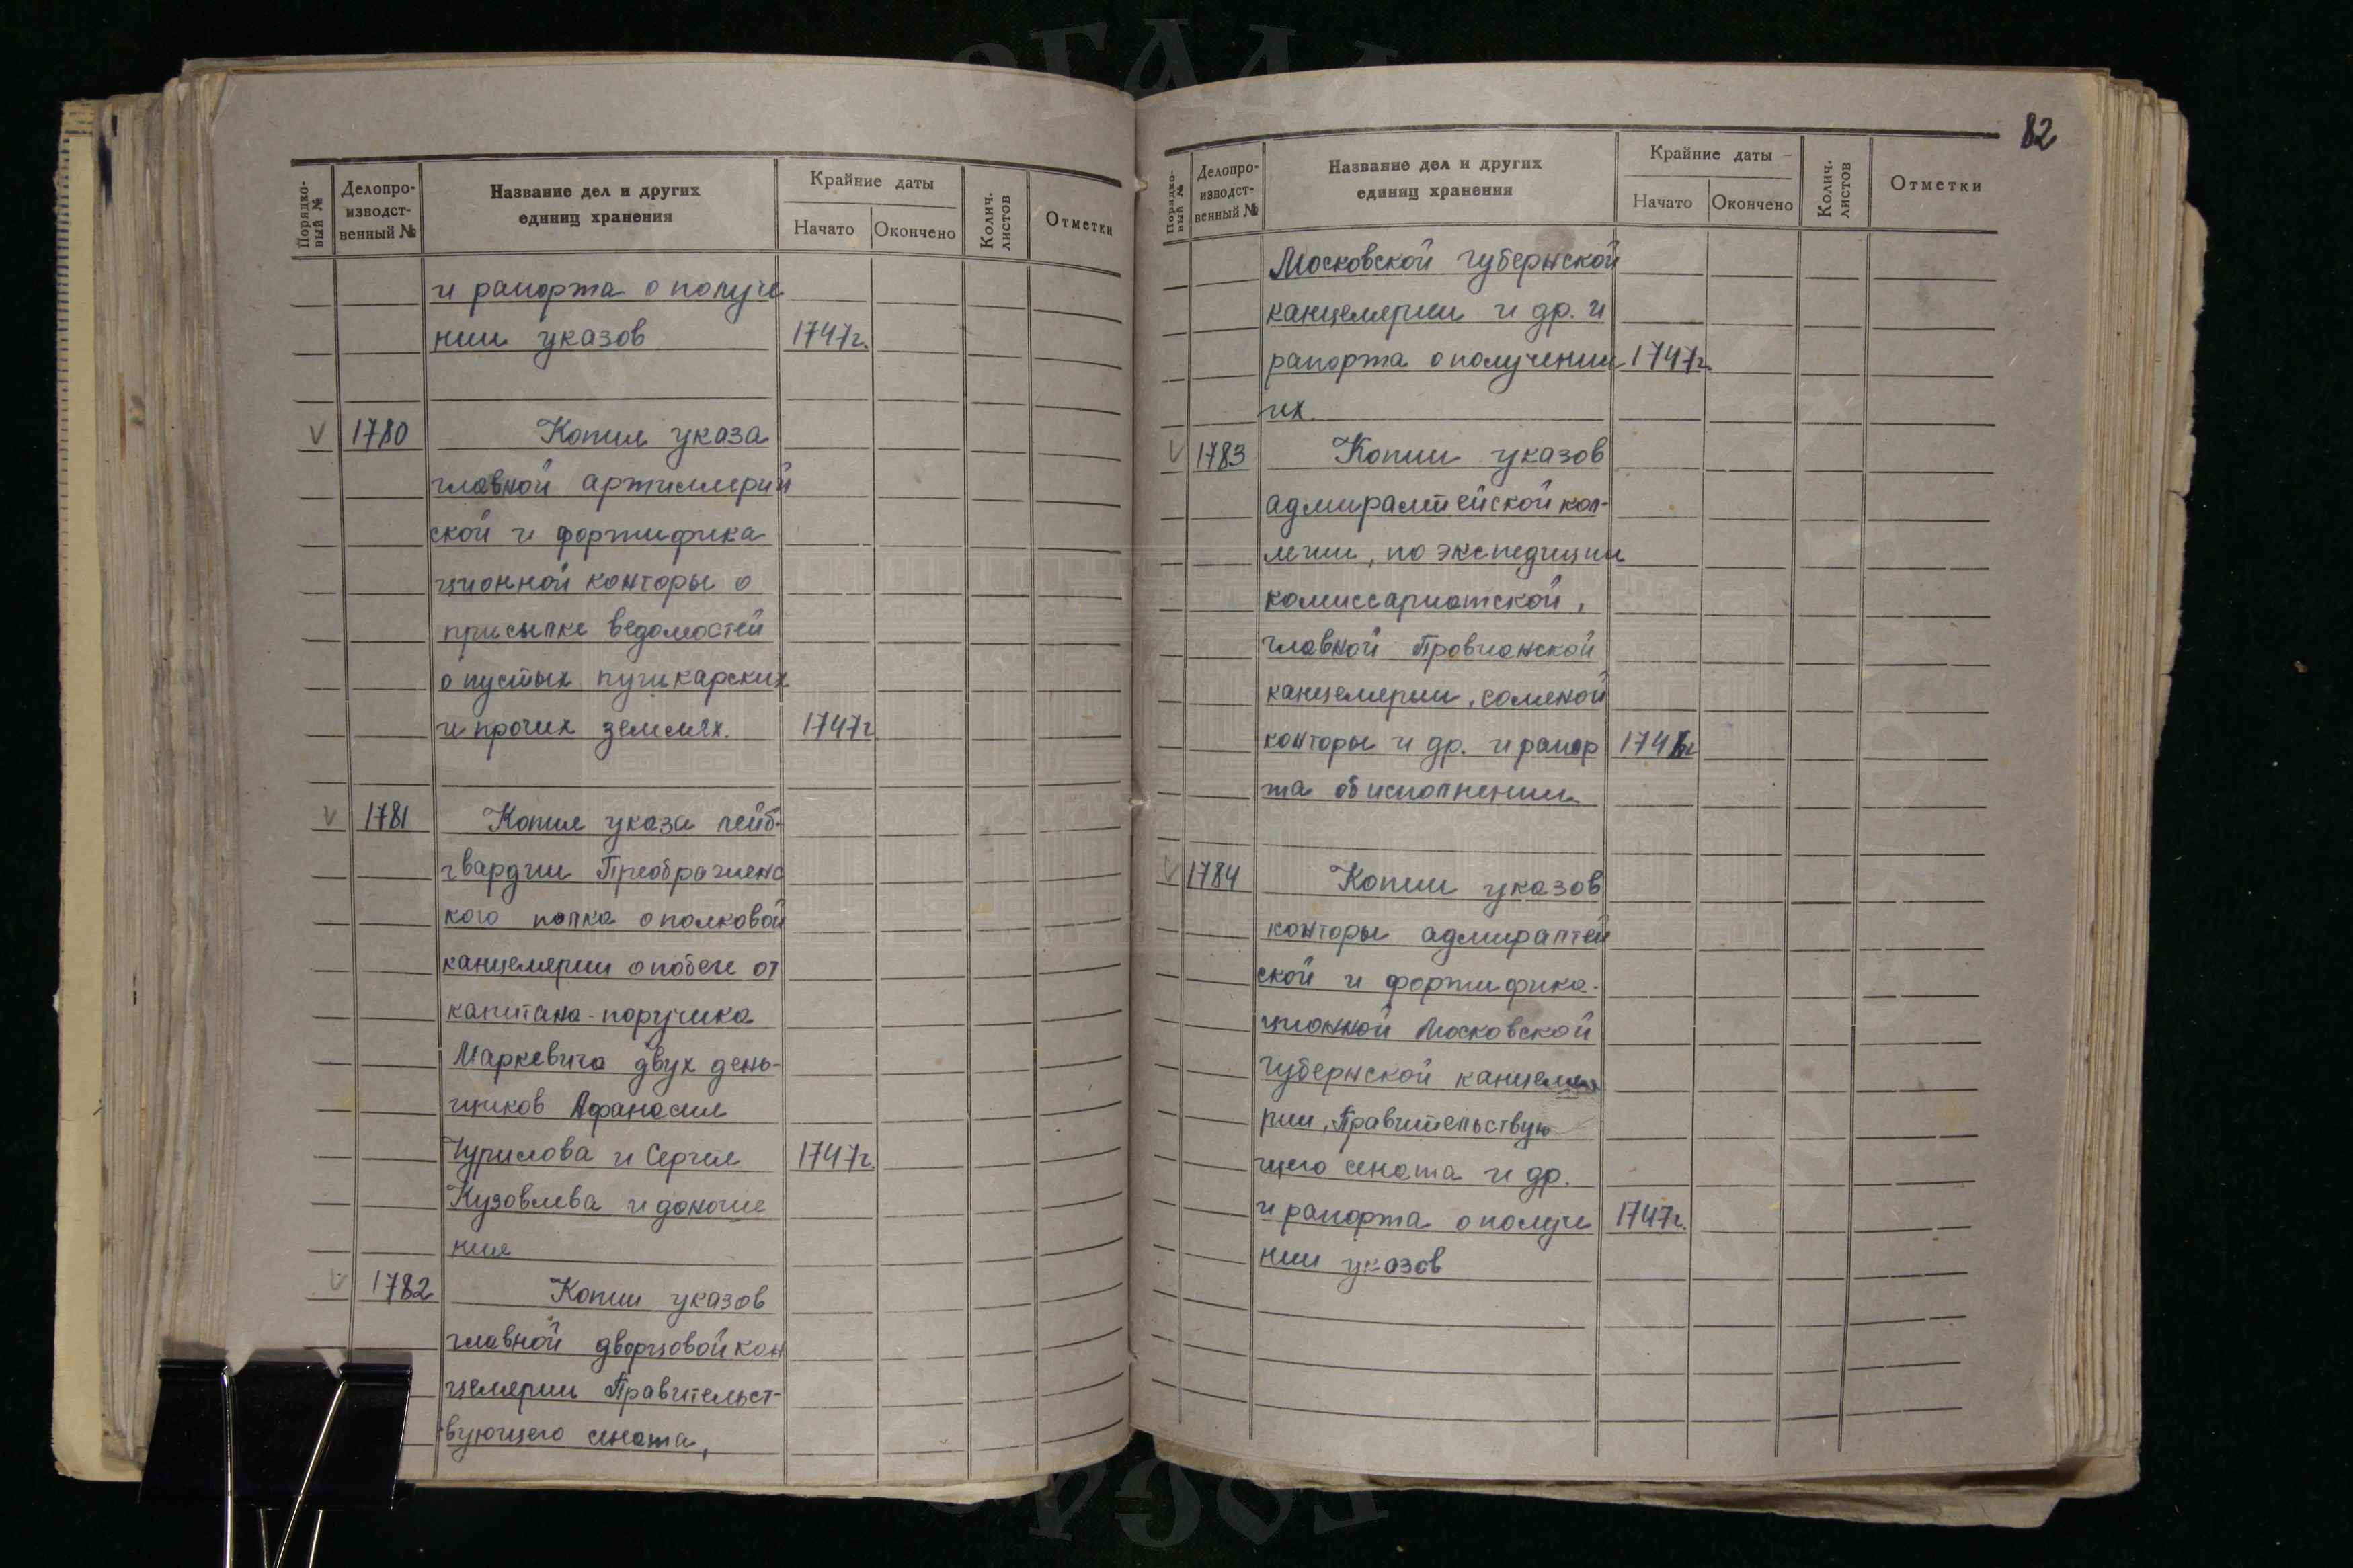 Порядко-
вый №
Делопро-
изводст-
венный №
Название дел и других
единиц хранения
Крайние даты
Начато
Окончено
Колич.
листов
Отметки
и рапорта о получе
нии указов 1747г.
V 1780 Копия указа
главной артиллерий
ской и фортифика
ционной конторы о
присылке ведомостей
о пустых пушкарских
и прочих землях. 1747г
V 1781 Копия указа лейб-
гвардии Преображенс
кого полка о полковой
канцелярии о побеге от
капитана-поручика
Маркевича двух день-
щиков Афанасия
Чурилова и Сергея 1747г.
Кузовлева и доноше
ния
V 1782 Копии указов
главной дворцовой кан
целярии Правительст-
вующего сената,
82
Порядко-
вый №
Делопро-
изводст-
венный №
Название дел и других
единиц хранения
Крайние даты
Начато
Окончено
Колич.
листов
Отметки
Московской губернской
канцелярии и др. и
рапорта о получении 1747г.
их.
V 1783 Копии указов
адмиралтейской кол-
легии, по экспедиции
комиссариатской,
главной Провианской
канцелярии, соляной
конторы и др. и рапор
та об исполнении.
V 1784 Копии указов
конторы адмиралтей
ской и фортифика-
ционной Московской
губернской канцеля
рии, Правительствую
щего сената и др.
и рапорта о получе 1747г.
нии указов
РГАДА